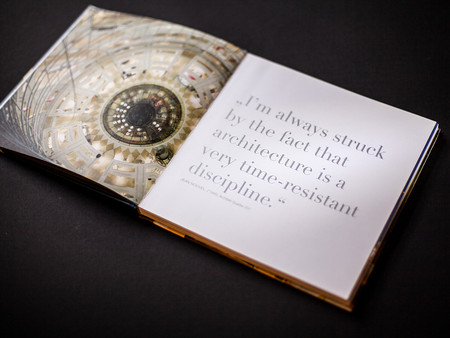 „I'm always struck
by the fact that
architecture is a
very time-resistant
discipline.“